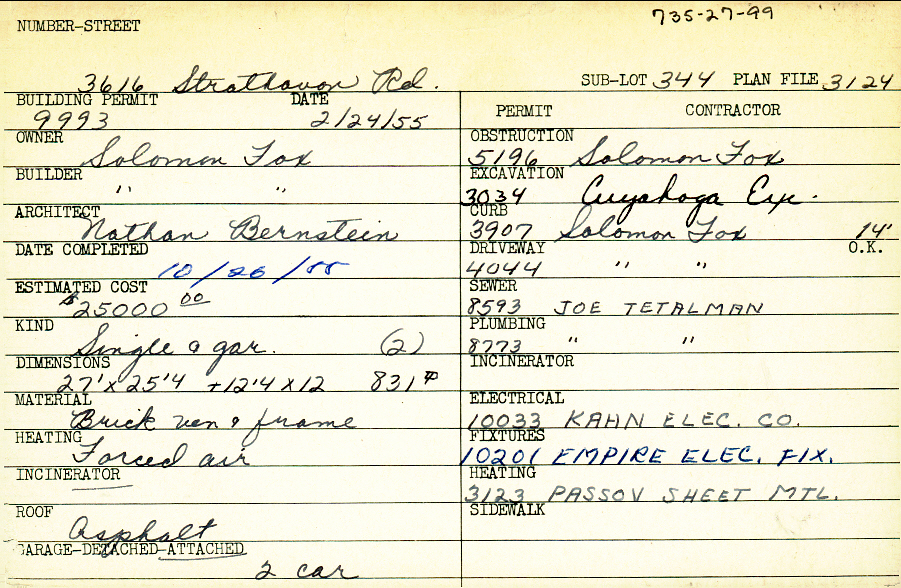 735-27-99
NUMBER-STREET
3616 Strathavon Rd.
SUB-LOT 344 PLAN FILE 3124
BUILDING PERMIT DATE
9993 2/24/55
OWNER
Solomon Fox
BUILDER
" "
ARCHITECT
Nathan Bernstein
DATE COMPLETED
10/26/55
ESTIMATED COST
$25000 00
KIND
Single & gar. (2)
DIMENSIONS
27' x 25'4 + 12'4 x 12 831#
MATERIAL
Brick ven & frame
HEATING
Forced air
INCINERATOR
ROOF
Asphalt
GARAGE-DETACHED-ATTACHED
2 car
PERMIT CONTRACTOR
OBSTRUCTION
5196 Solomon Fox
EXCAVATION
3034 Cuyahoga Exc.
CURB
3907 Solomon Fox 14'
DRIVEWAY O.K.
4044 " "
SEWER
8593 JOE TETALMAN
PLUMBING
8773 " "
INCINERATOR
ELECTRICAL
10033 KAHN ELEC. CO.
FIXTURES
10201 EMPIRE ELEC. FIX.
HEATING
3123 PASSOV SHEET MTL.
SIDEWALK